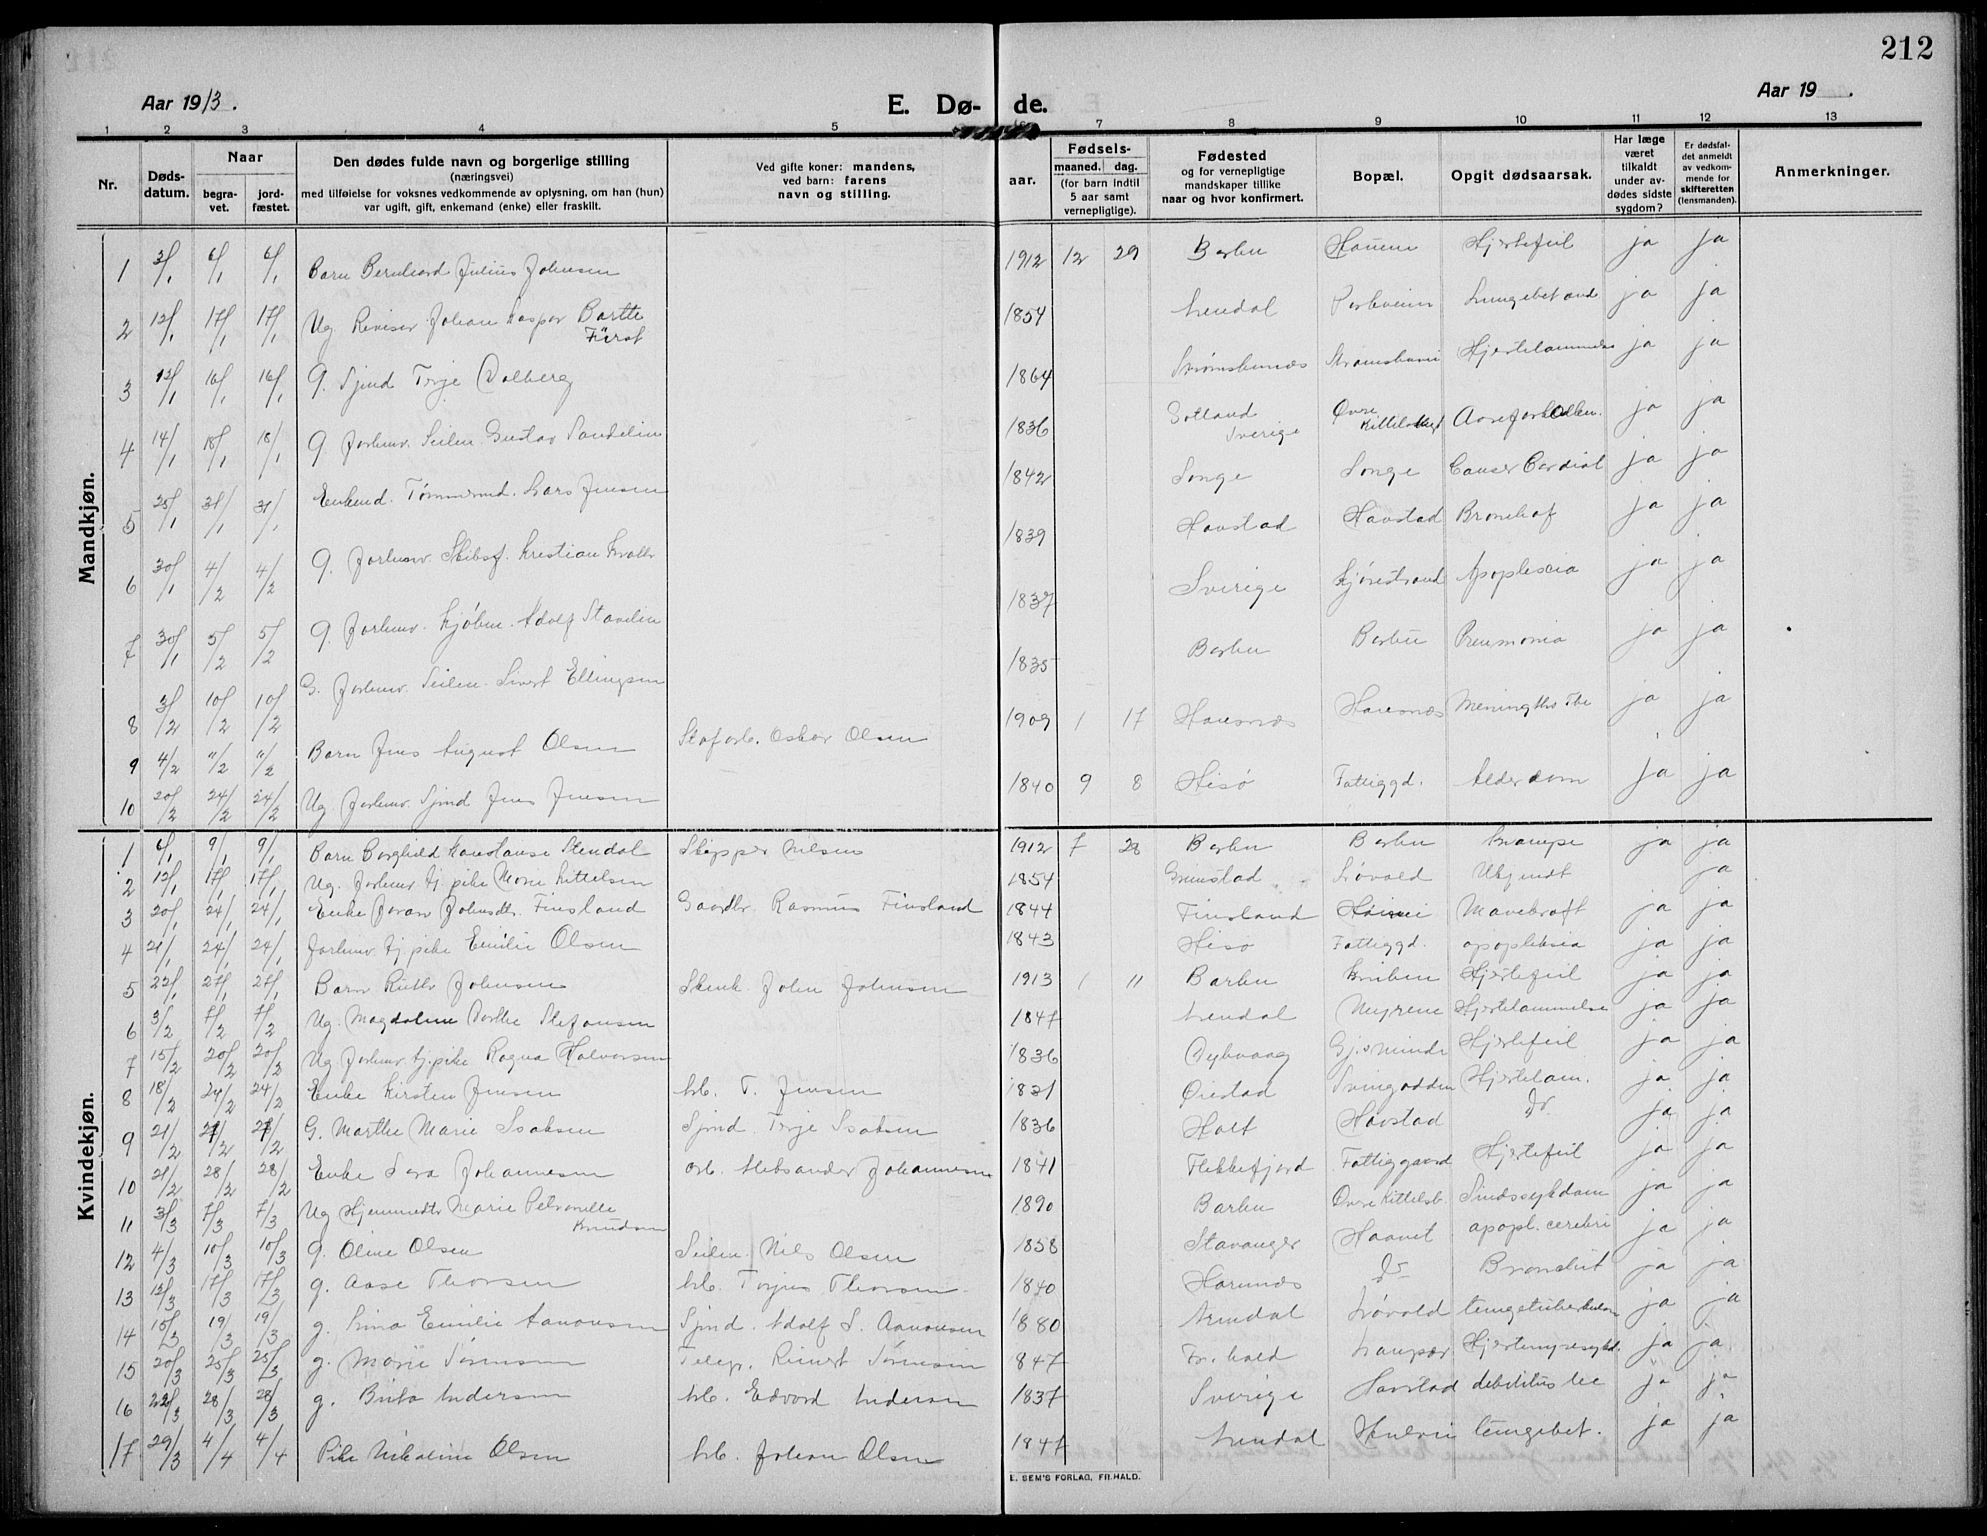 212
Aar 1913.
E. Dø-
de.
Aar 19 .
1 2 3 4 5 6 7 8 9 10 11 12 13
Nr.
Døds-
datum.
Naar
begra-
vet.
jord-
fæstet.
Den dødes fulde navn og borgerlige stilling
(næringsvei)
med tilføielse for voksnes vedkommende av oplysning, om han (hun)
var ugift, gift, enkemand (enke) eller fraskilt.
Ved gifte koner: mandens,
ved barn: farens
navn og stilling.
Fødsels-
aar. maaned. dag.
(for barn indtil
5 aar samt
vernepligtige).
Fødested
og for vernepligtige
mandskaper tillike
naar og hvor konfirmert.
Bopæl.
Opgit dødsaarsak.
Har læge
været
tilkaldt
under av-
dødes sidste
sygdom?
Er dødsfal-
det anmeldt
av vedkom-
mende for
skifteretten
(lensmanden).
Anmerkninger.
Mandkjøn.
1 3/1 6/1 6/1 Barn Bernhard Julius Johnsen 1912 12 29 Barbu Hjertefeil ja ja
2 12/1 17/1 17/1 Ug. Revisor Johan Kasper Barth Fürst 1854 Arendal Lungebetænd ja ja
3 12/1 16/1 16/1 g. Sjmd Terje Dalberg 1864 Hjertelammelse ja ja
4 14/1 18/1 18/1 g. Forhenv. Seilm. Gustav Sandelin 1836 Gotland Sverige Øvre ja ja
5 25/1 31/1 31/1 Enkemd. Tømmermd. Lars Jensen 1842 Songe Songe Cancer Cardial ja ja
6 30/1 4/2 4/2 g. Forhenv. Skibsf. Kristian 1839 Havstad Havstad ja ja
7 30/1 5/2 5/2 g. Forhenv. Kjøbm. Adolf 1837 Sverige Apoplexia ja ja
8 3/2 10/2 10/2 G. Forhenv. Seilm. Sivert Ellingsen 1835 Barbu Barbu Pneumonia ja ja
9 4/2 11/2 11/2 Barn Jens August Olsen Oskar Olsen 1909 1 17 ja ja
10 20/2 24/2 24/2 Ug. Forhenv. Sjmd Jens Jensen 1840 9 8 Hisø Fattiggd. Alderdom ja ja
Kvindekjøn.
1 6/1 9/1 9/1 Barn Borghild Konstanse Stendal Skipper Nilsen 1912 7 28 Barbu Barbu Krampe ja ja
2 12/1 17/1 17/1 Ug. Forhenv tj. pike Marie Kittelsen 1854 Grimstad Løvold Ukjendt ja
3 20/1 24/1 24/1 Enke Joran Johnsdtr. Finsland Gaardbr. Rasmus Finsland 1844 Finsland Mavekræft ja ja
4 21/1 24/1 24/1 Forhenv. tj. pike Emilie Olsen 1843 Hisø Fattiggd. apopleksia ja ja
5 22/1 27/1 27/1 Barn Ruth Johnsen John Johnsen 1913 1 11 Barbu Hjertefeil ja ja
6 3/2 7/2 7/2 Ug. Magdalene Dorthe Stefansen 1847 Arendal Myrene Hjertelammelse ja ja
7 15/2 20/2 20/2 Ug Forhenv. tj. pike Ragna Halvorsen 1836 Dybvaag Hjertefeil ja ja
8 18/2 24/2 24/2 Enke Kirsten Jensen Arb. T. Jensen 1831 Øiestad Svingodden Hjertelam. ja ja
9 21/2 27/2 27/2 G. Marthe Marie Isaksen Sjmd. Terje Isaksen 1836 Holt Havstad Do ja ja
10 21/2 28/2 28/2 Enke Sara Johannesen Arb. Aleksander Johannesen 1841 Flekkefjord Fattiggaard Hjertefeil ja ja
11 3/3 7/3 7/3 Ug Hjemmedtr Marie Petronille Knudsen 1890 Barbu Øvre Kittelsb. Sindssykdom ja ja
12 4/3 10/3 10/3 g. Oline Olsen Seilm. Nils Olsen 1858 Stavanger Haavet apopl. cerebri ja ja
13 12/3 17/3 17/3 g. Aase Thorsen Arb. Torjus Thorsen 1840 Do Bronchit ja ja
14 15/3 19/3 19/3 g. Lina Emilie Aanonsen Sjmd. Adolf S. Aanonsen 1880 Arendal Løvold Lungetuberkulose ja ja
15 20/3 25/3 25/3 g. Marie Sørensen Reinert Sørensen 1847 Fr. hald ja ja
16 22/3 28/3 28/3 g. Berta Andersen Arb. Edvard Andersen 1837 Sverige Havstad ja ja
17 29/3 4/4 4/4 Pike Nikoline Olsen Arb. Johan Olsen 1847 Arendal Lungebet. ja ja
E. SEM'S FORLAG, FR.HALD.